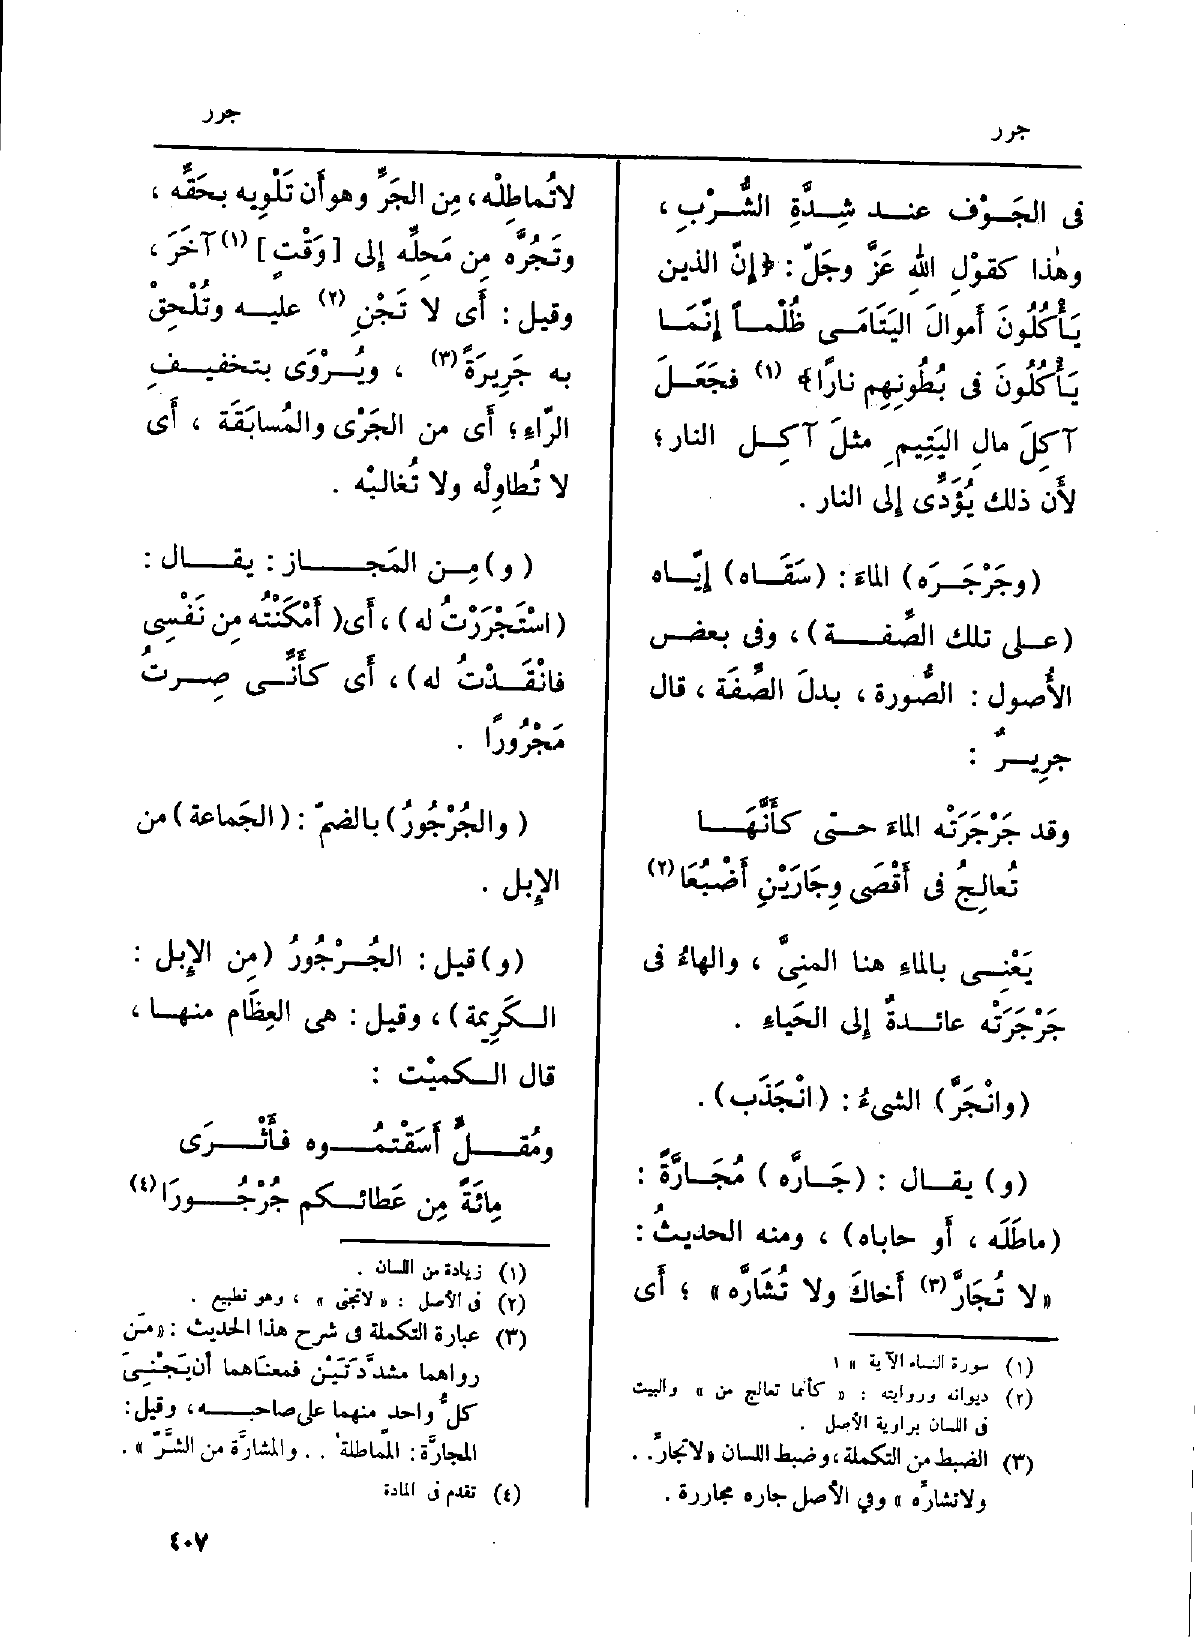 جرر
جرر
فى الجَوْف عند شِدَّةِ الشُّرْبِ ،
وهٰذا كقوْلِ اللهِ عَزَّ وجَلّ : ﴿إنّ الذين
يَأْكُلُونَ أموالَ اليَتَامَى ظُلْماً إنَّمَا
يَأْكُلُونَ فى بُطُونِهِم نارًا﴾ (١) فجَعَلَ
آكِلَ مالِ اليَتِيمِ مثلَ آكِلِ النار ؛
لأَن ذلك يُؤَدِّى إلى النار .
(وجَرْجَرَه) الماءَ : (سَقَاه) إيَّاه
(على تلك الصِّفة) ، وفى بعض
الأُصول : الصُّورة ، بدلَ الصِّفَة ، قال
جرِيرٌ :
وقد جَرْجَرَتْه الماءَ حتى كأَنَّهَا
تُعالِجُ فى أَقْصَى وِجَارَيْنِ أَضْبُعَا (٢)
يَعْنِى بالماءِ هنا المنِىَّ ، والهاءُ فى
جَرْجَرَتْه عائدةٌ إلى الحَياءِ .
(وانْجَرَّ) الشىءُ : (انْجَذَب) .
(و) يقال : (جَارَّه ) مُجَارَّةً :
(ماطَلَه ، أو حاباه) ، ومنه الحديثُ :
« لا تُجَارَّ (٣) أَخاكَ ولا تُشَارَّه » ؛ أَى
(١) سورة النساء الآية ١٠
(٢) ديوانه وروايته : « كأنما تعالج من » والبيت
فى اللسان براوية الأصل .
(٣) الضبط من التكملة ، وضبط اللسان « لاتجارِّ . .
ولاتشارِّه » وفي الأصل جاره مجاررة .
لاتُماطِلْه ، مِن الجَرِّ وهو أن تَلْوِيه بحَقِّه ،
وتَجُرَّه مِن مَحِلِّه إلى [وَقْتٍ] (١) آخَرَ ،
وقيل : أَى لا تَجْنِ (٢) عليه وتُلْحِقْ
به جَرِيرَةً (٣) ، ويُرْوَى بتخفيفِ
الرّاءِ ؛ أَى من الجَرْى والمُسابَقَة ، أَى
لا تُطاوِلْه ولا تُغالبْه .
(و) مِن المَجاز : يقال :
(اسْتَجْرَرْتُ له) ، أَى( أَمْكَنْتُه مِن نَفْسِى
فانْقَدْتُ له) ، أَى كأَنِّى صِرتُ
مَجْرُورًا .
(والجُرْجُورُ) بالضمّ : (الجَماعة) من
الإبِل .
(و) قيل : الجُرْجُورُ (مِن الإبِل :
الكَرِيمة) ، وقيل : هى العِظَام منها ،
قال الكميْت :
ومُقِلٍّ أَسَقْتُمُوه فأَثْرَى
مِائَةً مِن عَطائكم جُرْجُورَا (٤)
(١) زيادة من اللسان .
(٢) فى الأصل : « لاتجنى » ، وهو تطبيع .
(٣) عبارة التكملة فى شرح هذا الحديث : « مَن
رواهما مشدَّدَتَيْن فمعناهما أن يَجْنِىَ
كلُّ واحد منهما على صاحبه ، وقيل :
المجارَّة : المماطلة . . والمشارَّة من الشرّ » .
(٤) تقدم فى المادة
٤٠٧